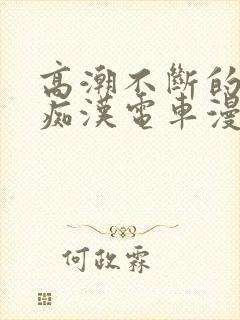 高潮不斷的
痴漢電車漫
何政霖